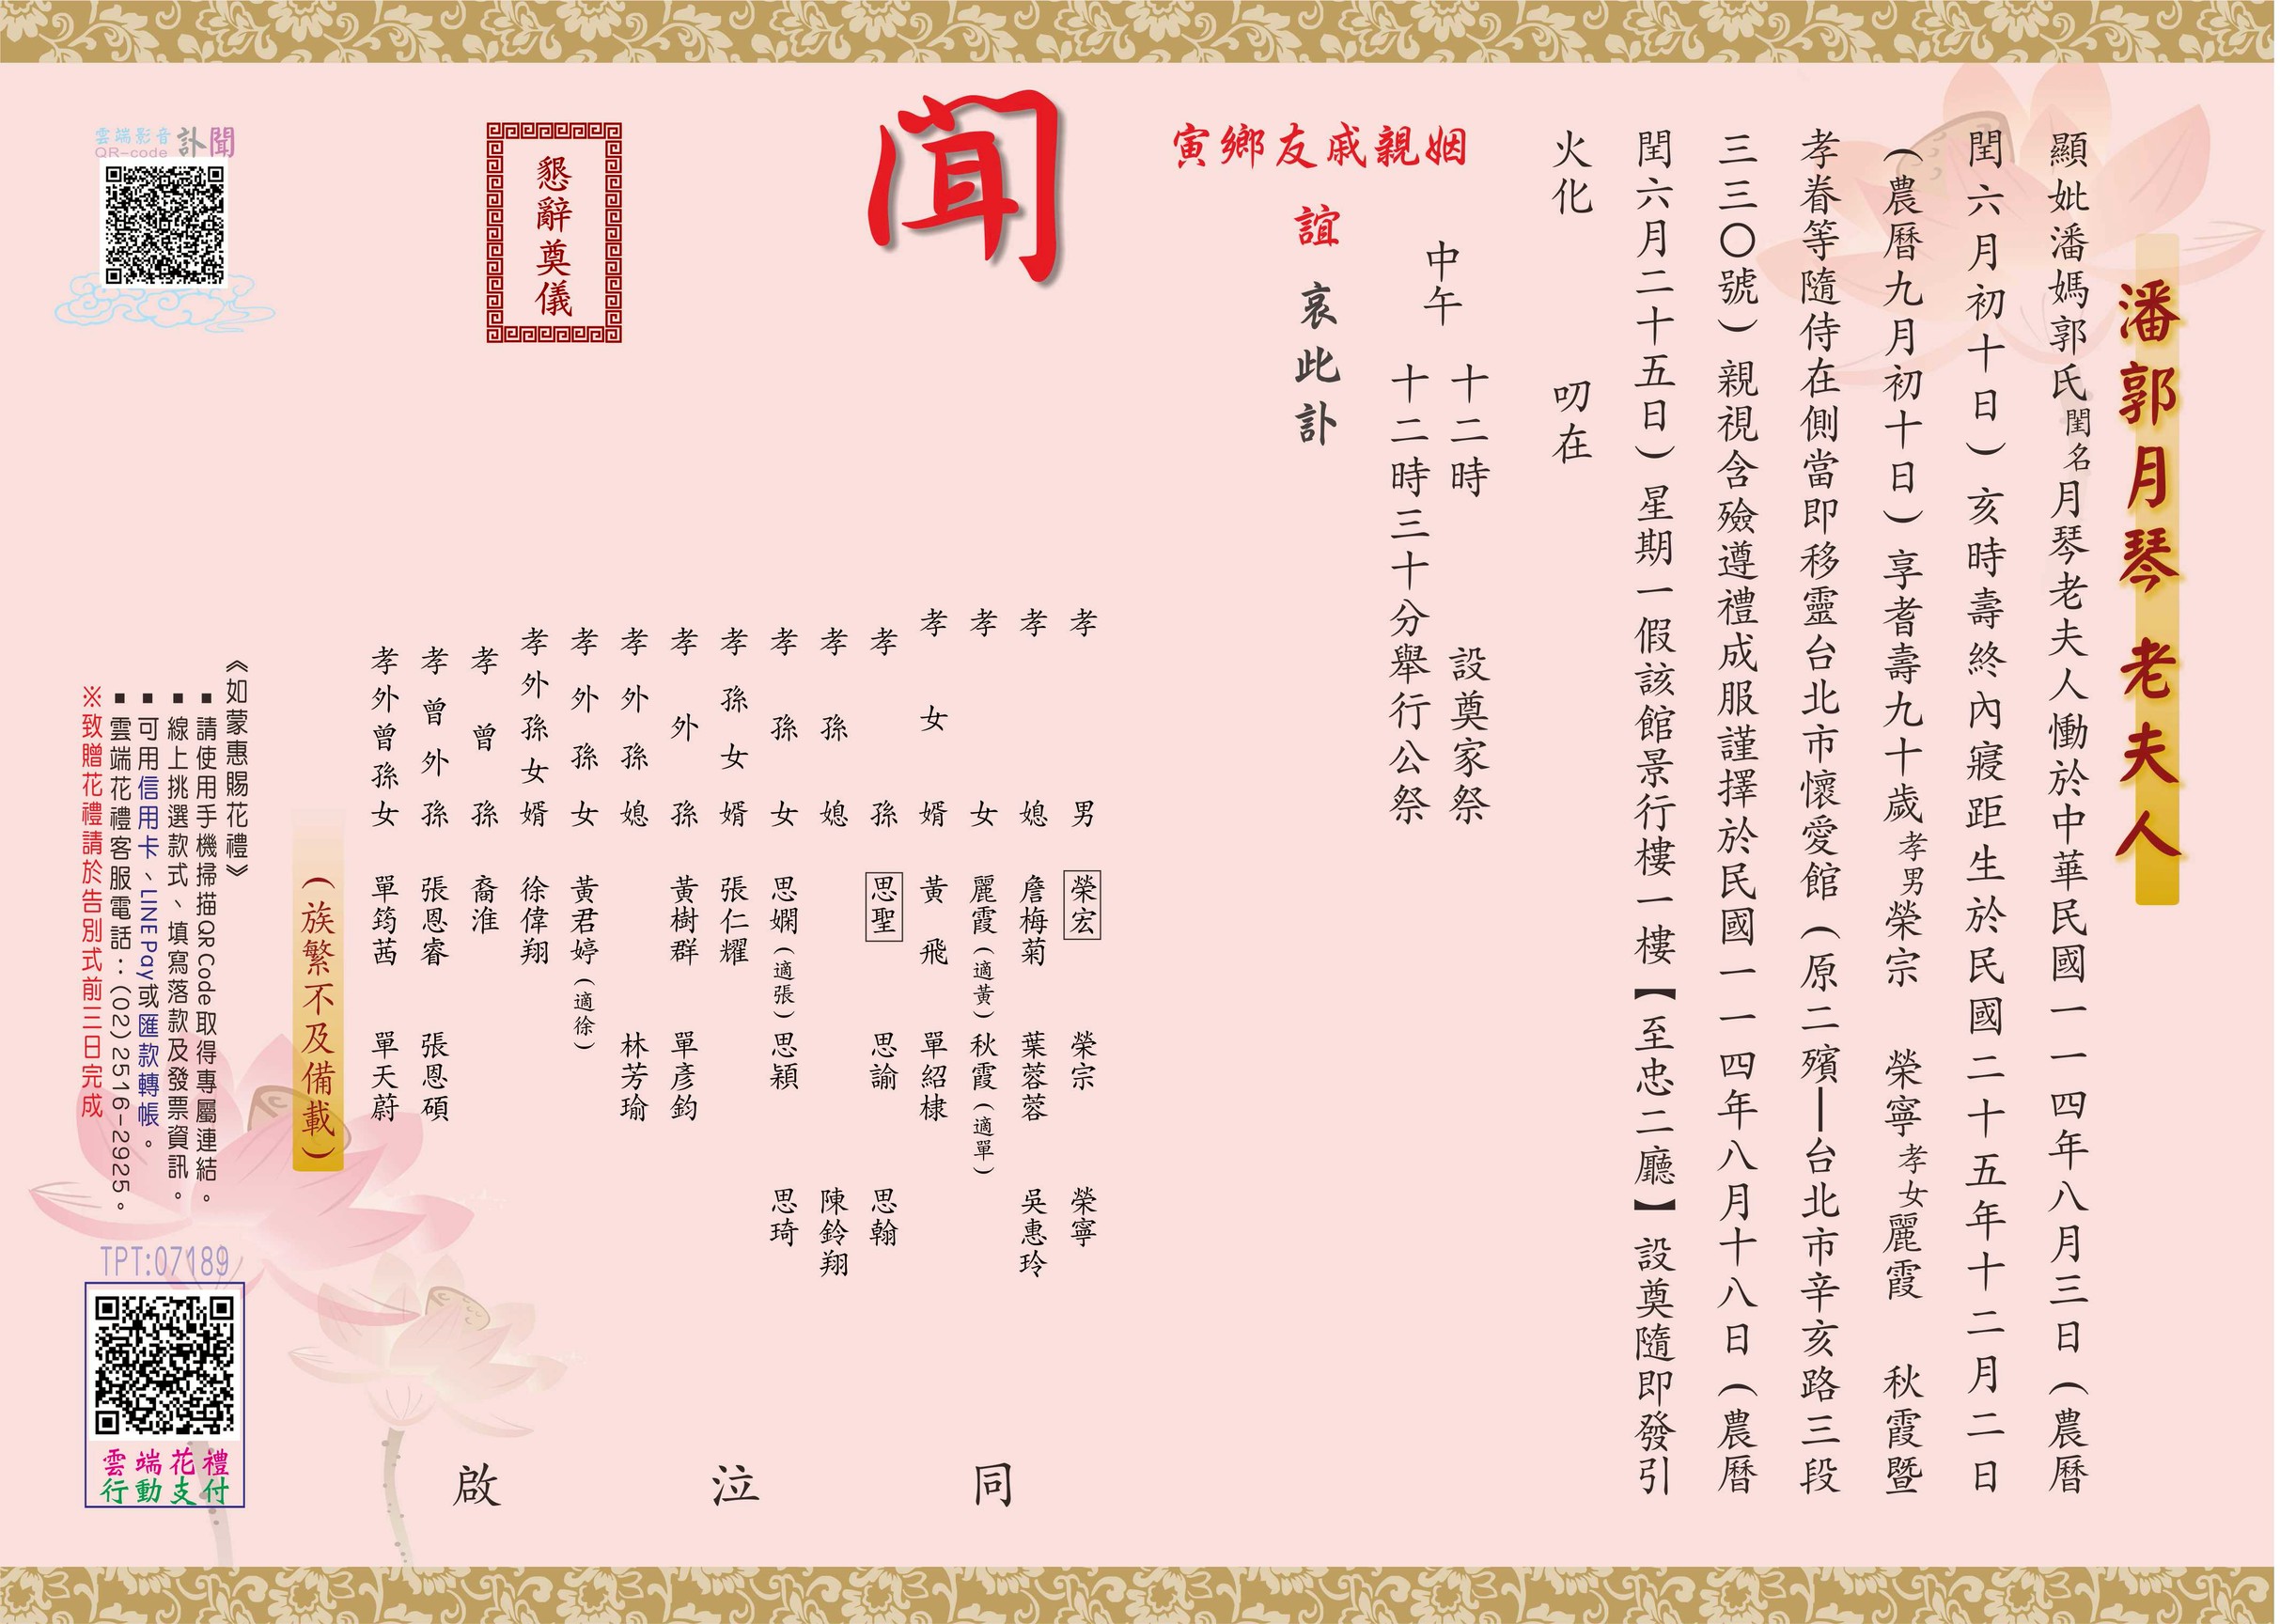 潘郭月琴 老夫人
顯妣潘媽郭氏閨名月琴老夫人慟於中華民國一一四年八月三日（農曆
閏六月初十日）亥時壽終內寢距生於民國二十五年十二月二日
（農曆九月初十日）享耆壽九十歲孝男榮宗 榮寧孝女麗霞 秋霞暨
孝眷等隨侍在側當即移靈台北市懷愛館（原二殯—台北市辛亥路三段
三三〇號）親視含殮遵禮成服謹擇於民國一一四年八月十八日（農曆
閏六月二十五日）星期一假該館景行樓一樓【至忠二廳】設奠隨即發引
火化 叨在
十二時 設奠家祭
中午
十二時三十分舉行公祭
姻親戚友鄉寅
誼 哀此訃
聞
孝男 榮宏 榮宗 榮寧
孝媳 詹梅菊 葉蓉蓉 吳惠玲
孝女 麗霞（適黃） 秋霞（適單）
孝女婿 黃飛 單紹棣
孝孫 思聖 思諭 思翰
孝孫媳 陳鈴翔
孝孫女 思嫻（適張） 思穎 思琦
孝孫女婿 張仁耀
孝外孫 黃樹群 單彥鈞
孝外孫媳 林芳瑜
孝外孫女 黃君婷（適徐）
孝外孫女婿 徐偉翔
孝曾孫 裔淮
孝曾外孫 張恩睿 張恩碩
孝外曾孫女 單筠茜 單天蔚
同 泣 啟
懇辭奠儀
（族繁不及備載）
訃聞
雲端影音
QR-code
《如蒙惠賜花禮》
▪請使用手機掃描QR Code取得專屬連結。
▪線上挑選款式、填寫落款及發票資訊。
▪可用信用卡、LINE Pay或匯款轉帳。
▪雲端花禮客服電話：(02)2516-2925。
※致贈花禮請於告別式前三日完成
TPT:07189
雲端花禮
行動支付